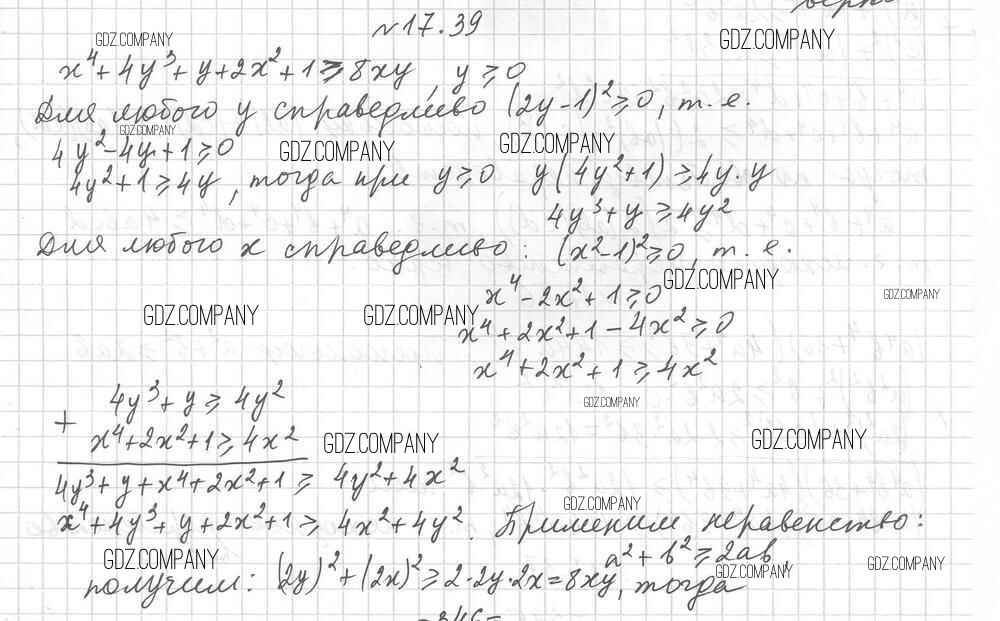 №17.39
GDZ.COMPANY
GDZ.COMPANY
x⁴+4y³+y+2x²+1≥8xy, y≥0
Для любого y справедливо (2y-1)²≥0, т.е.
GDZ.COMPANY
4y²-4y+1≥0
GDZ.COMPANY
GDZ.COMPANY
4y²+1≥4y, тогда при y≥0 y(4y²+1)≥4y·y
4y³+y≥4y²
Для любого x справедливо: (x²-1)²≥0, т.е.
GDZ.COMPANY
x⁴-2x²+1≥0
GDZ.COMPANY
GDZ.COMPANY
GDZ.COMPANY
x⁴+2x²+1-4x²≥0
x⁴+2x²+1≥4x²
4y³+y≥4y²
GDZ.COMPANY
+
x⁴+2x²+1≥4x²
GDZ.COMPANY
GDZ.COMPANY
4y³+y+x⁴+2x²+1≥4y²+4x²
GDZ.COMPANY
x⁴+4y³+y+2x²+1≥4x²+4y². Применим неравенство:
a²+b²≥2ab,
GDZ.COMPANY
GDZ.COMPANY
GDZ.COMPANY
получим: (2y)²+(2x)²≥2·2y·2x=8xy, тогда